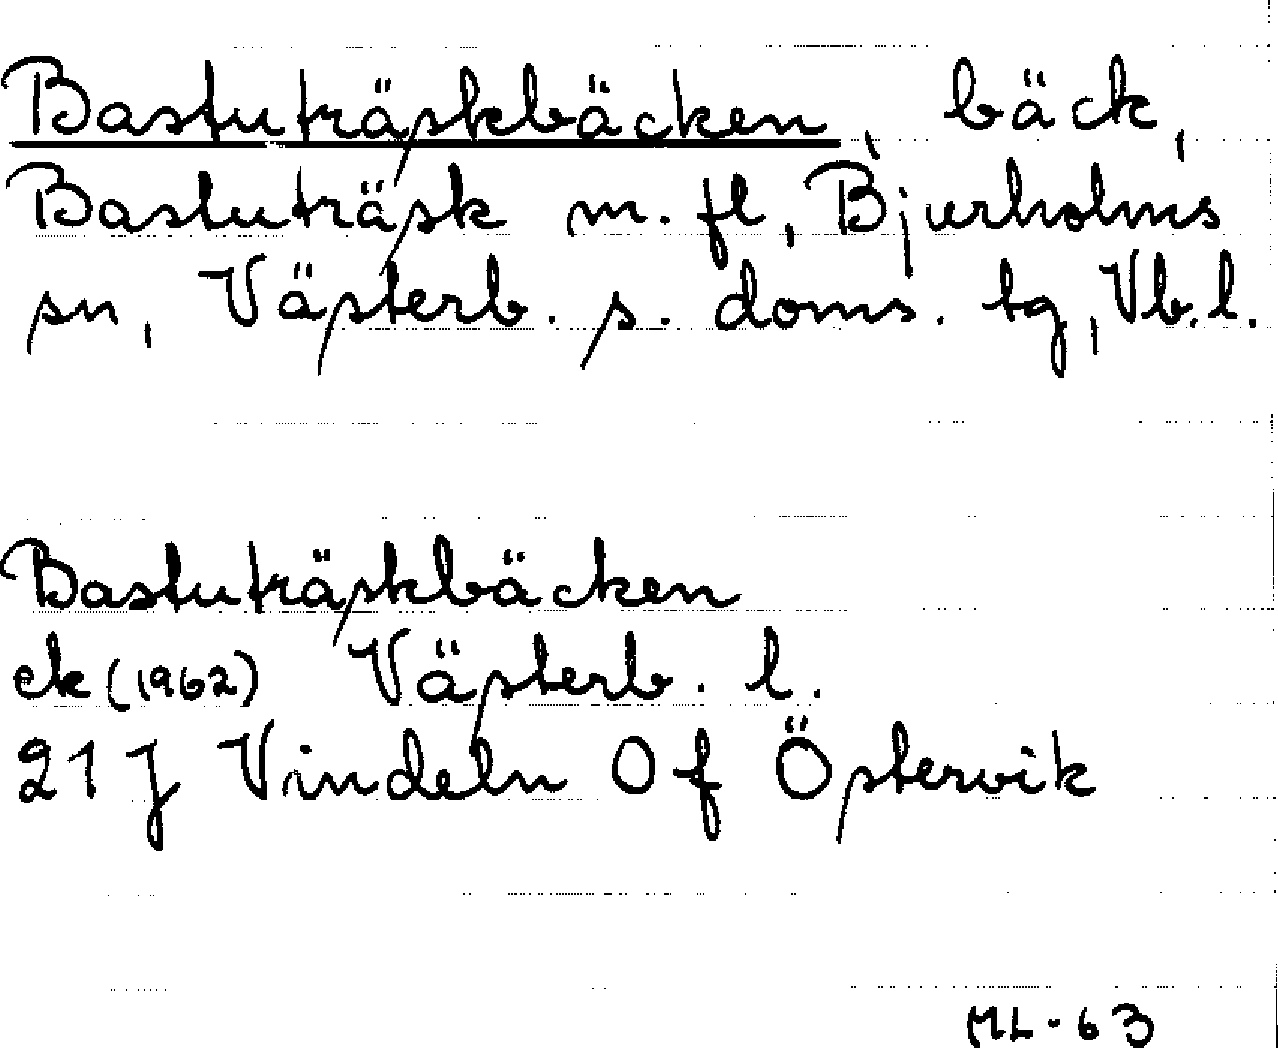 Bastuträskbäcken, bäck,
Bastuträsk m. fl, Bjurholms
sn, Västerb. s. doms. tg, Vb. l.
Bastuträskbäcken
ek (1962) Västerb. l.
21 J Vindeln 0f Östervik
ML-63